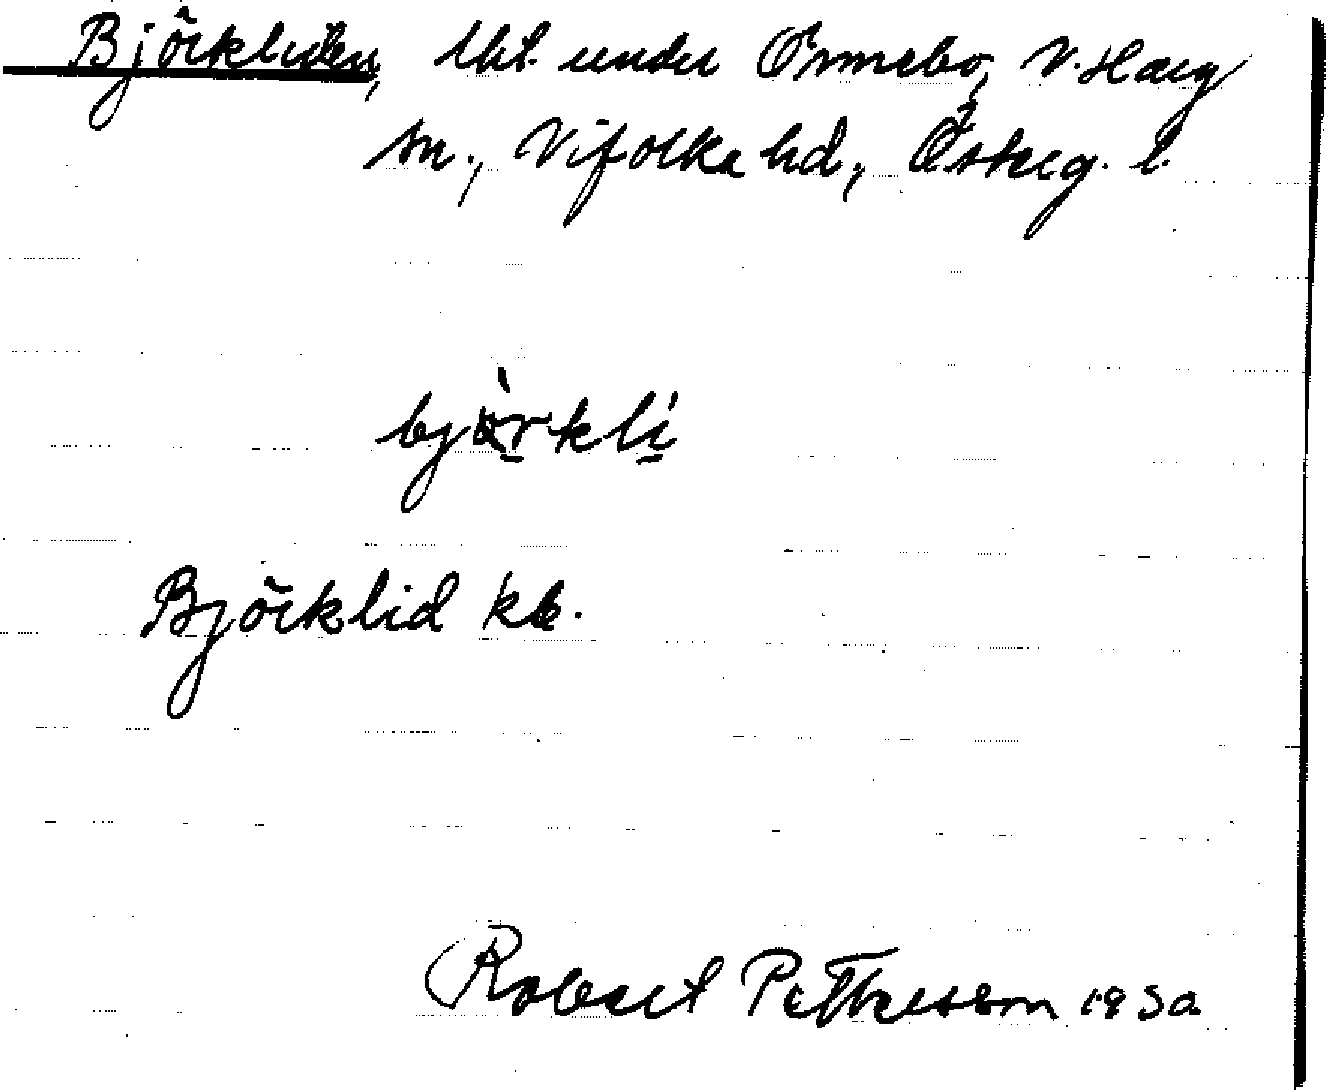 Björkliden, lht under Ormebo, V. Harg
sn., Vifolka hd, Österg. l.
bjòrklí
Björklid kb.
Robert Pettersson 1930